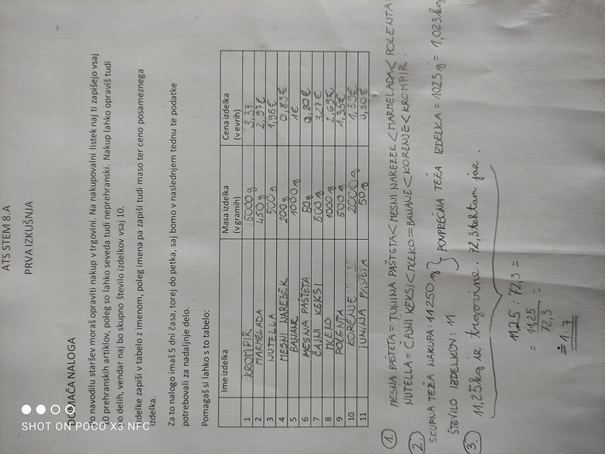 ATS STEM 8.A
PRVA IZKUŠNJA
DOMAČA NALOGA
Po navodilu staršev moraš opraviti nakup v trgovini. Na nakupovalni listek naj ti zapišejo vsaj
10 prehranskih artiklov, poleg so lahko seveda tudi neprehranski. Nakup lahko opraviš tudi
po delih, vendar naj bo skupno število izdelkov vsaj 10.
Izdelke zapiši v tabelo z imenom, poleg imena pa zapiši tudi maso ter ceno posameznega
izdelka.
Za to nalogo imaš 5 dni časa, torej do petka, saj bomo v naslednjem tednu te podatke
potrebovali za nadaljnje delo.
Pomagaš si lahko s to tabelo:
Ime izdelka Masa izdelka (v gramih) Cena izdelka (v evrih)
1 KROMPIR 5000 g 3,37
2 MARMELADA 450 g 2,97€
3 NUTELLA 500 g 1,98€
4 MESNI NAREZEK 200 g 0,89€
5 BANANE 1000 g 1€
6 MESNA PAŠTETA 50 g 0,80€
7 ČAJNI KEKSI 500 g 3,27€
8 MLEKO 1000 g 2,69€
9 POLENTA 500 g 1,35€
10 KORENJE 2000 g 1,59€
11 TUNINA PAŠTETA 50 g
1. MESNA PAŠTETA = TUNINA PAŠTETA < MESNI NAREZEK < MARMELADA < POLENTA
NUTELLA = ČAJNI KEKSI < MLEKO = BANANE < KORENJE < KROMPIR.
2. SKUPNA TEŽA NAKUPA: 11250 g } POVPREČNA TEŽA IZDELKA = 1023 g = 1,023 kg
ŠTEVILO IZDELKOV: 11
3. 11,25 kg iz trgovine : 72,3 tehtam jaz.
11,25 : 72,3 =
= 11,25 / 72,3 =
≐ 1 : 7
SHOT ON POCO X3 NFC